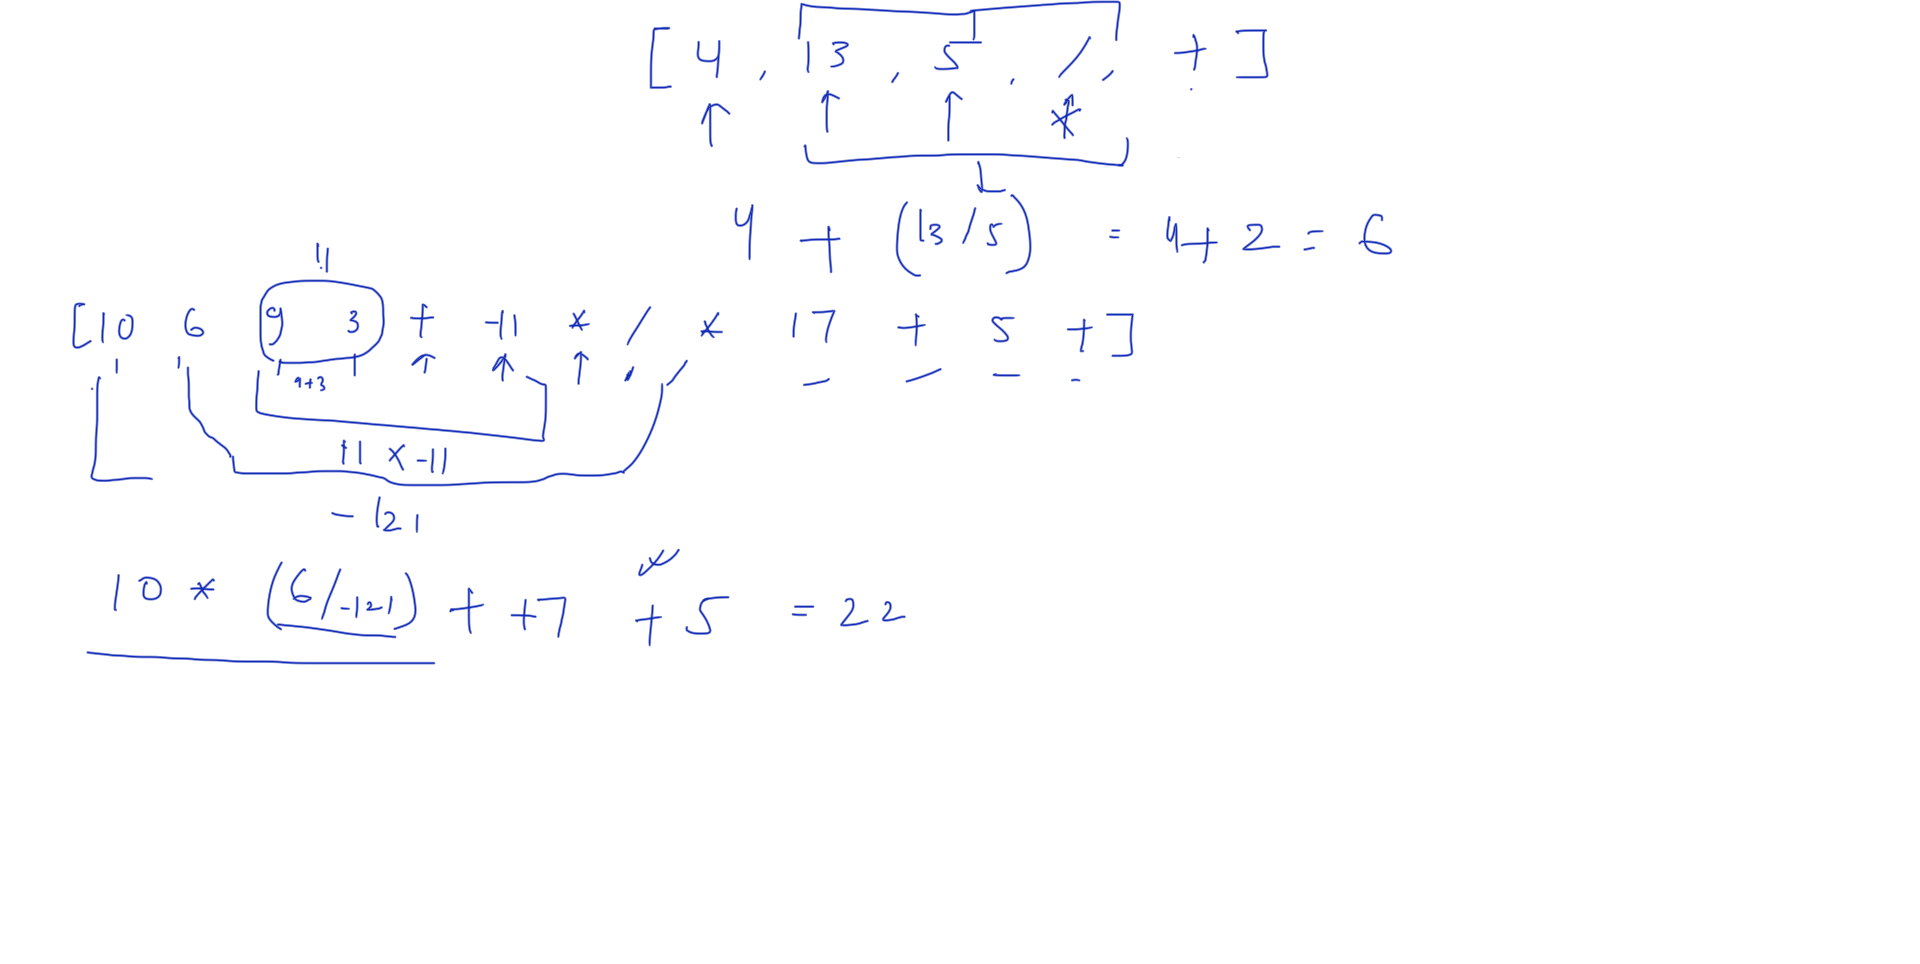 [ 4 , 13 , 5 , / , + ]
4 + (13/5) = 4+ 2 = 6
11
[10 6 9 3 + -11 * / * 17 + 5 +]
9+3
11 x -11
-121
10 * (6/-121) + +7 + 5 = 22